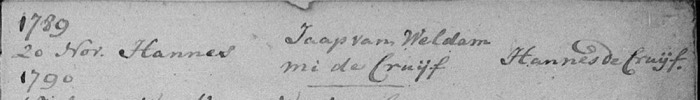 1789
20 Nov. Hannes Jaap van Weldam Hannes de Cruijf.
mi de Cruijf
1790